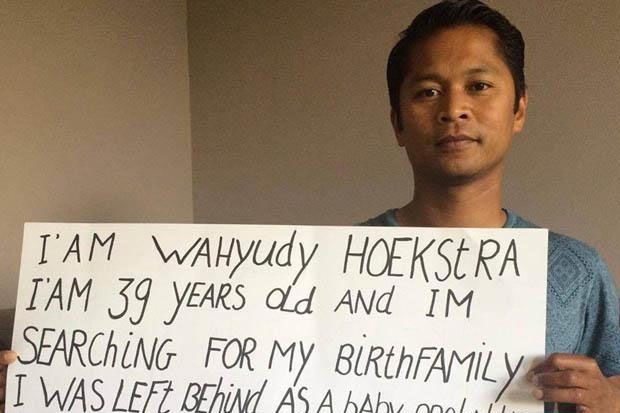 I'AM WAHYUDY HOEKSTRA
I'AM 39 YEARS OLD AND IM
SEARCHING FOR MY BIRTHFAMILY
I WAS LEFT BEHIND AS A BABY